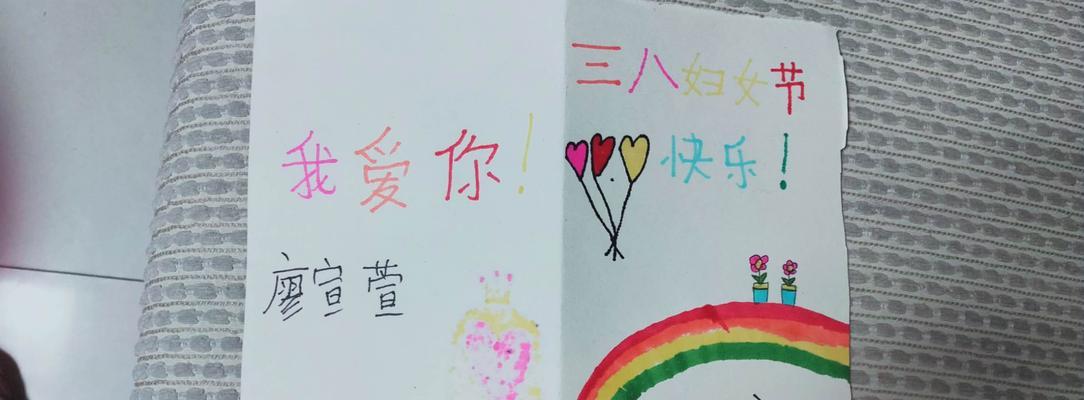 我爱你!
廖宣萱
三八妇女节
快乐!